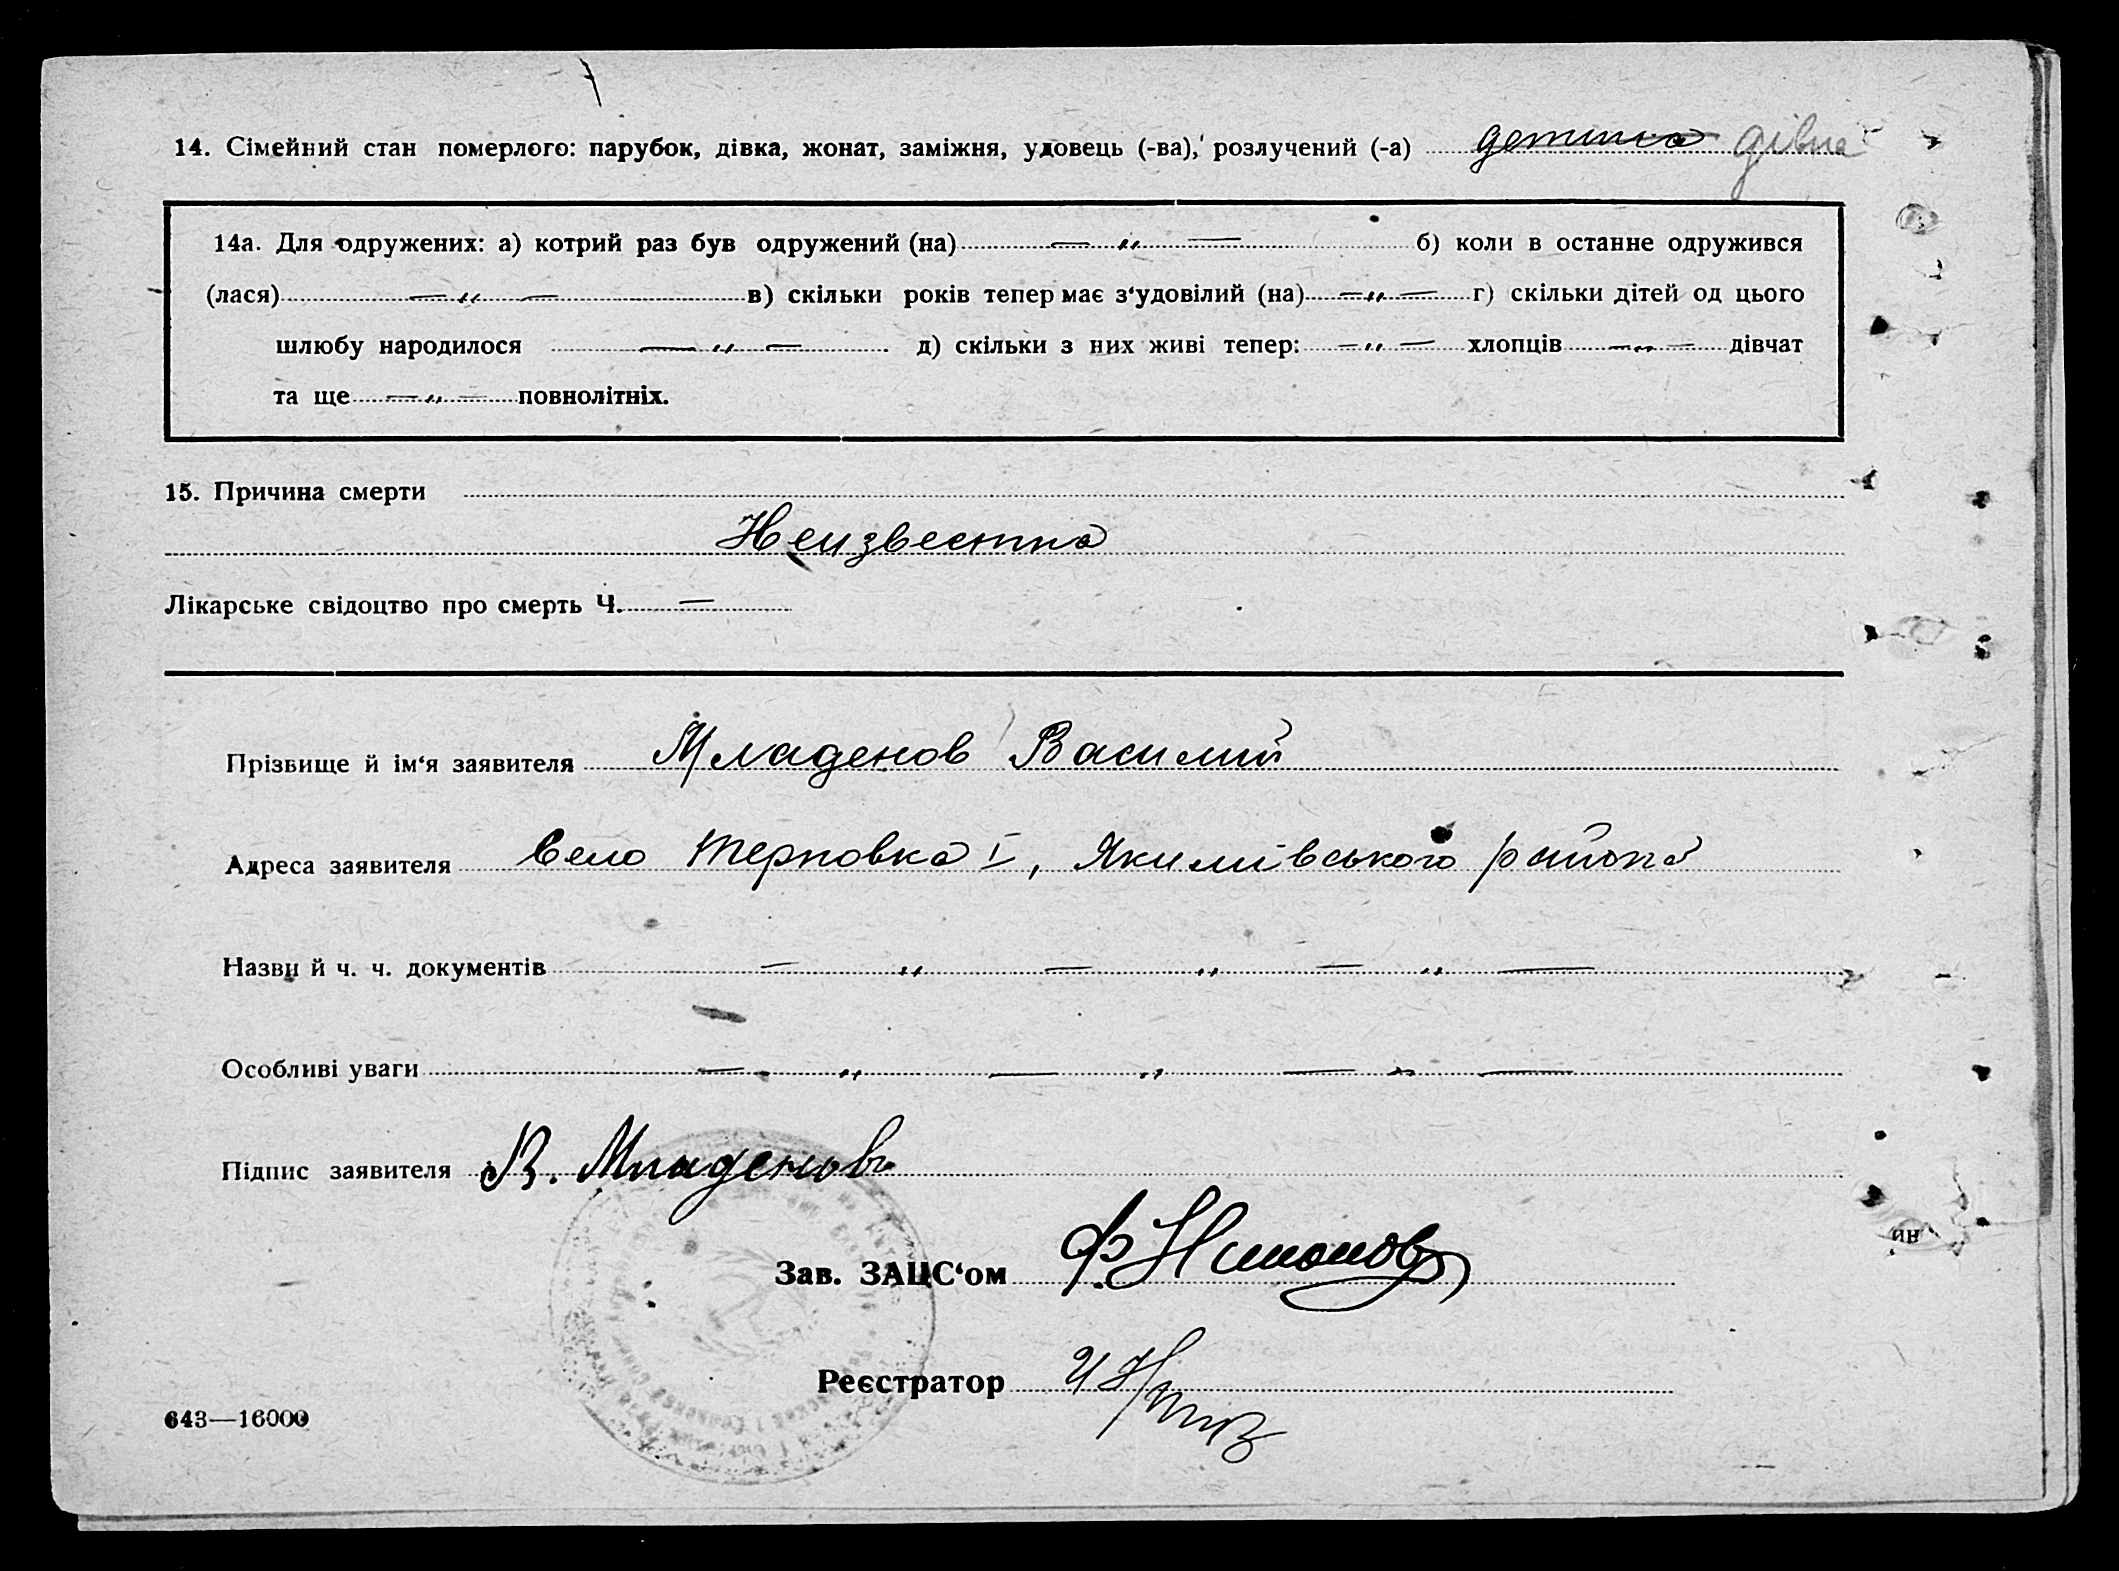 14. Сімейний стан померлого: парубок, дівка, жонат, заміжня, удовець (-ва), розлучений (-а) детина дівка
14а. Для одружених: а) котрий раз був одружений (на) — „ — б) коли в останне одружився
(лася) — „ — в) скільки років тепер має з‘удовілий (на) — „ — г) скільки дітей од цього
шлюбу народилося — „ — д) скільки з них живі тепер: — „ — хлопців — „ — дівчат
та ще — „ — повнолітніх.
15. Причина смерти
Неизвестна
Лікарське свідоцтво про смерть Ч. —
Прізвище й ім‘я заявителя Младенов Василий
Адреса заявителя Село Терновка I, Якимівського района
Назви й ч. ч. документів — „ — „ — „ —
Особливі уваги — „ — „ — „ —
Підпис заявителя В. Младеновъ
Зав. ЗАЦС‘ом
Реєстратор
643—16000
ин